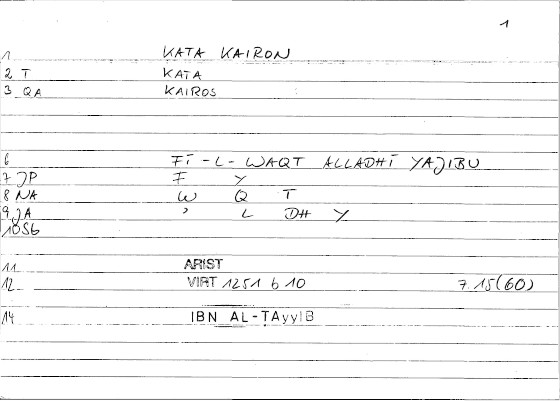 1
1 KATA KAIRON
2 T KATA
3 QA KAIROS
6 FĪ-L-WAQT ALLADHĪ YAJIBU
7 JP F Y
8 NA W Q T
9 JA ' L DH Y
10 SG
11 ARIST
12 VIRT 1251 b 10 7.15(60)
14 IBN AL-ṬAyyIB